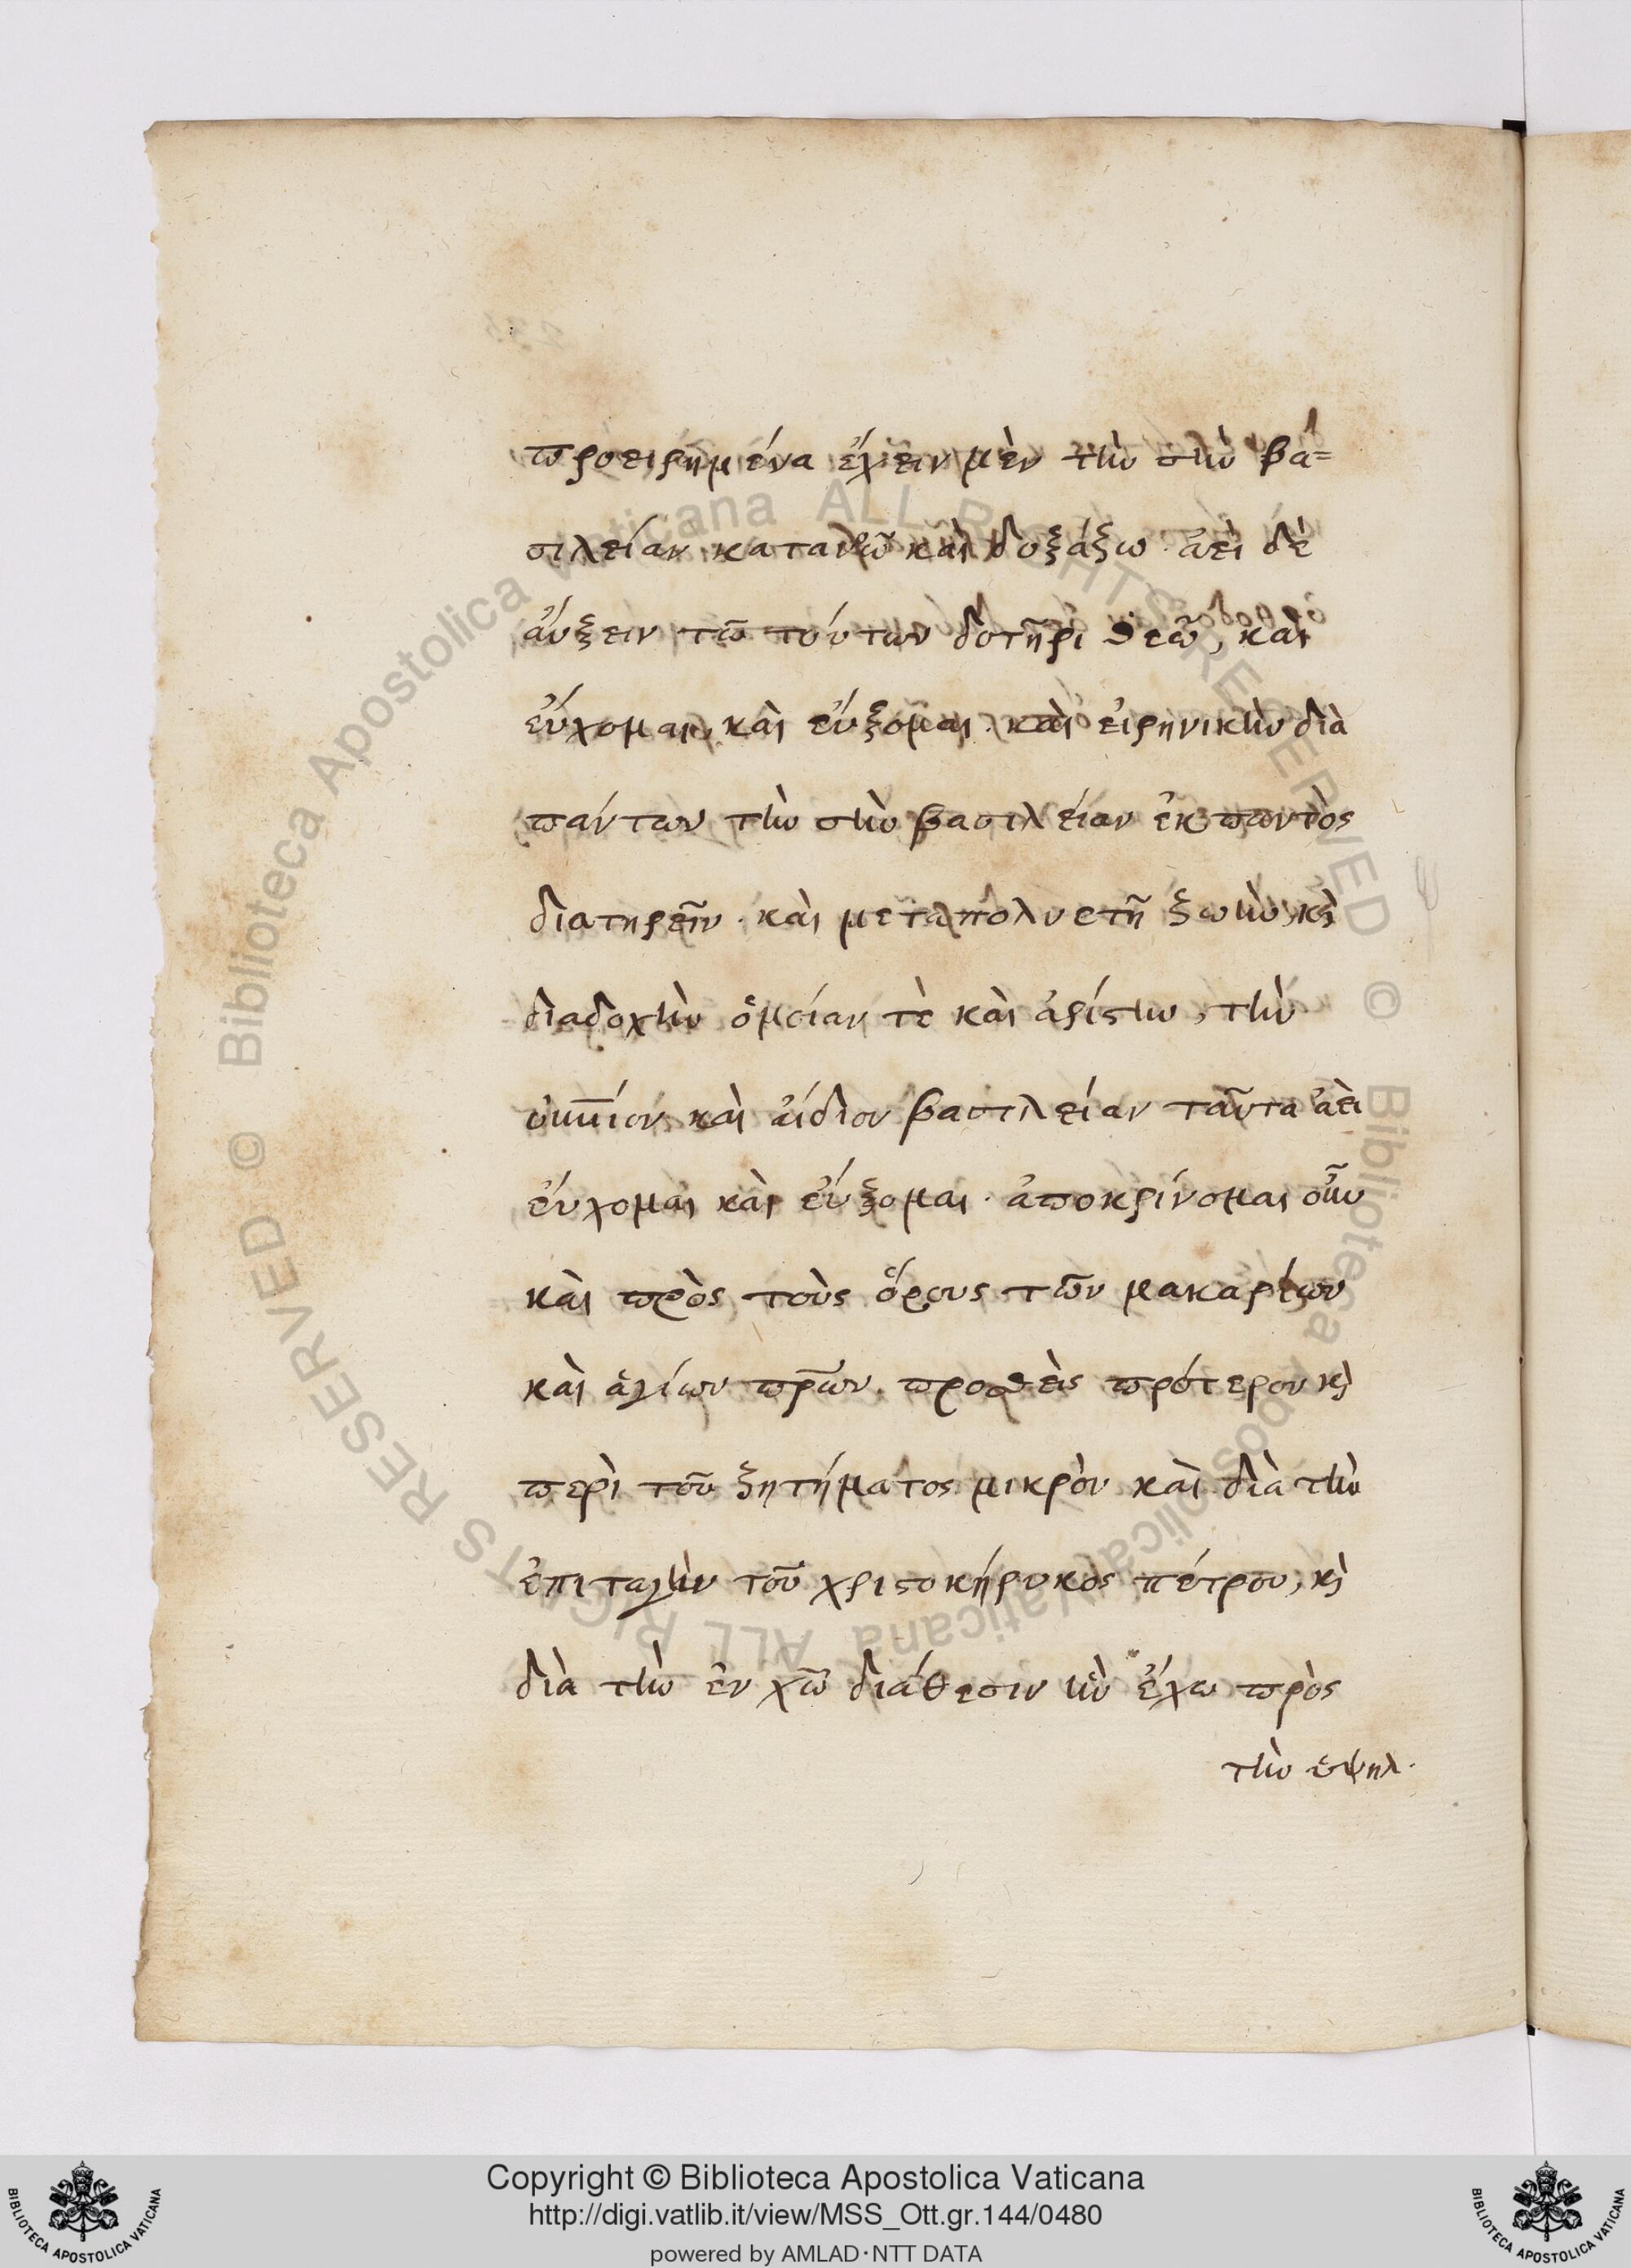 προειρημένα ἔχειν μὲν τὴν σὴν βα=
σιλείαν κατανοῶ καὶ δοξάζω · ἀεὶ δὲ
ἄυξειν τῶ τούτων δοτῆρι θεῶ, καὶ
ἐύχομαι, καὶ ἐύξομαι. καὶ ἐιρηνικὴν διὰ
πάντων τὴν σὴν βασιλείαν ἐκ παντὸς
διατηρεῖν · καὶ μετὰ πολυετῆ ζωὴν, κὶ
διαδοχὴν ὁμοίαν τὲ καὶ ἀρίστην, τὴν
οὐνιον καὶ ἀίδιον βασιλείαν ταῦτα ἀεὶ
ἐύχομαι καὶ ἐύξομαι · ἀποκρίνομαι οὖν
καὶ πρὸς τοὺς ὅρους τῶν μακαρίων
καὶ ἁγίων πρῶν. προθεὶς πρότερον κὶ
περὶ τοῦ ζητήματος μικρὸν καὶ διὰ τὴν
ἐπιταγὴν τοῦ χριστοκήρυκος πέτρου, κὶ
διὰ τὴν ἐν χῶ διάθεσιν ἣν ἔχω πρὸς
τὴν ὑψηλ.
Copyright © Biblioteca Apostolica Vaticana
http://digi.vatlib.it/view/MSS_Ott.gr.144/0480
powered by AMLAD·NTT DATA
BIBLIOTECA APOSTOLICA VATICANA
BIBLIOTECA APOSTOLICA VATICANA
© Biblioteca Apostolica Vaticana ALL RIGHTS RESERVED
© Biblioteca Apostolica Vaticana ALL RIGHTS RESERVED